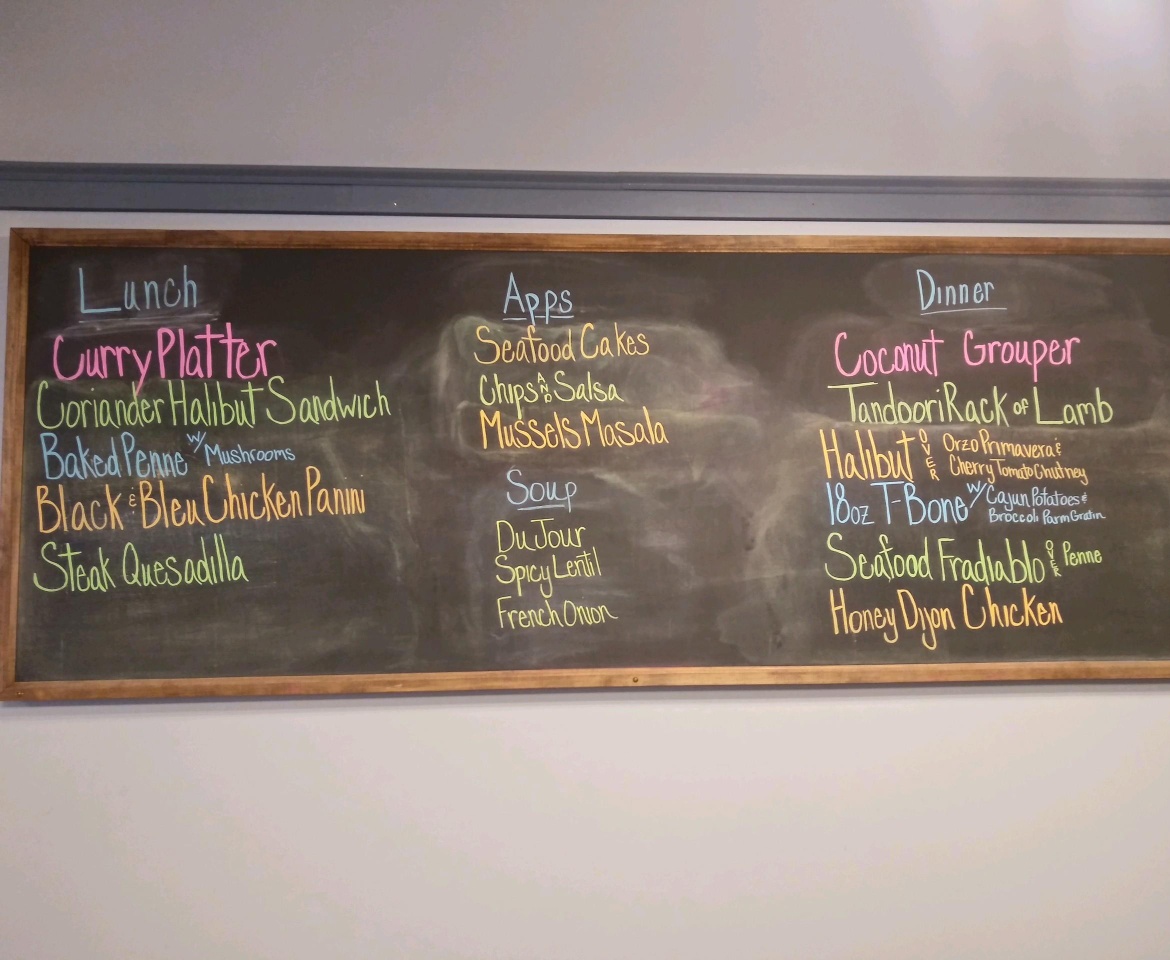 Lunch
Curry Platter
Coriander Halibut Sandwich
Baked Penne w/ Mushrooms
Black & Bleu Chicken Panini
Steak Quesadilla
Apps
Seafood Cakes
Chips AND Salsa
Mussels Masala
Soup
Du Jour
Spicy Lentil
French Onion
Dinner
Coconut Grouper
Tandoori Rack of Lamb
Halibut OVER Orzo Primavera &
Cherry Tomato Chutney
18oz T-Bone w/ Cajun Potatoes &
Broccoli Parm Gratin
Seafood Fradiablo OVER Penne
Honey Dijon Chicken